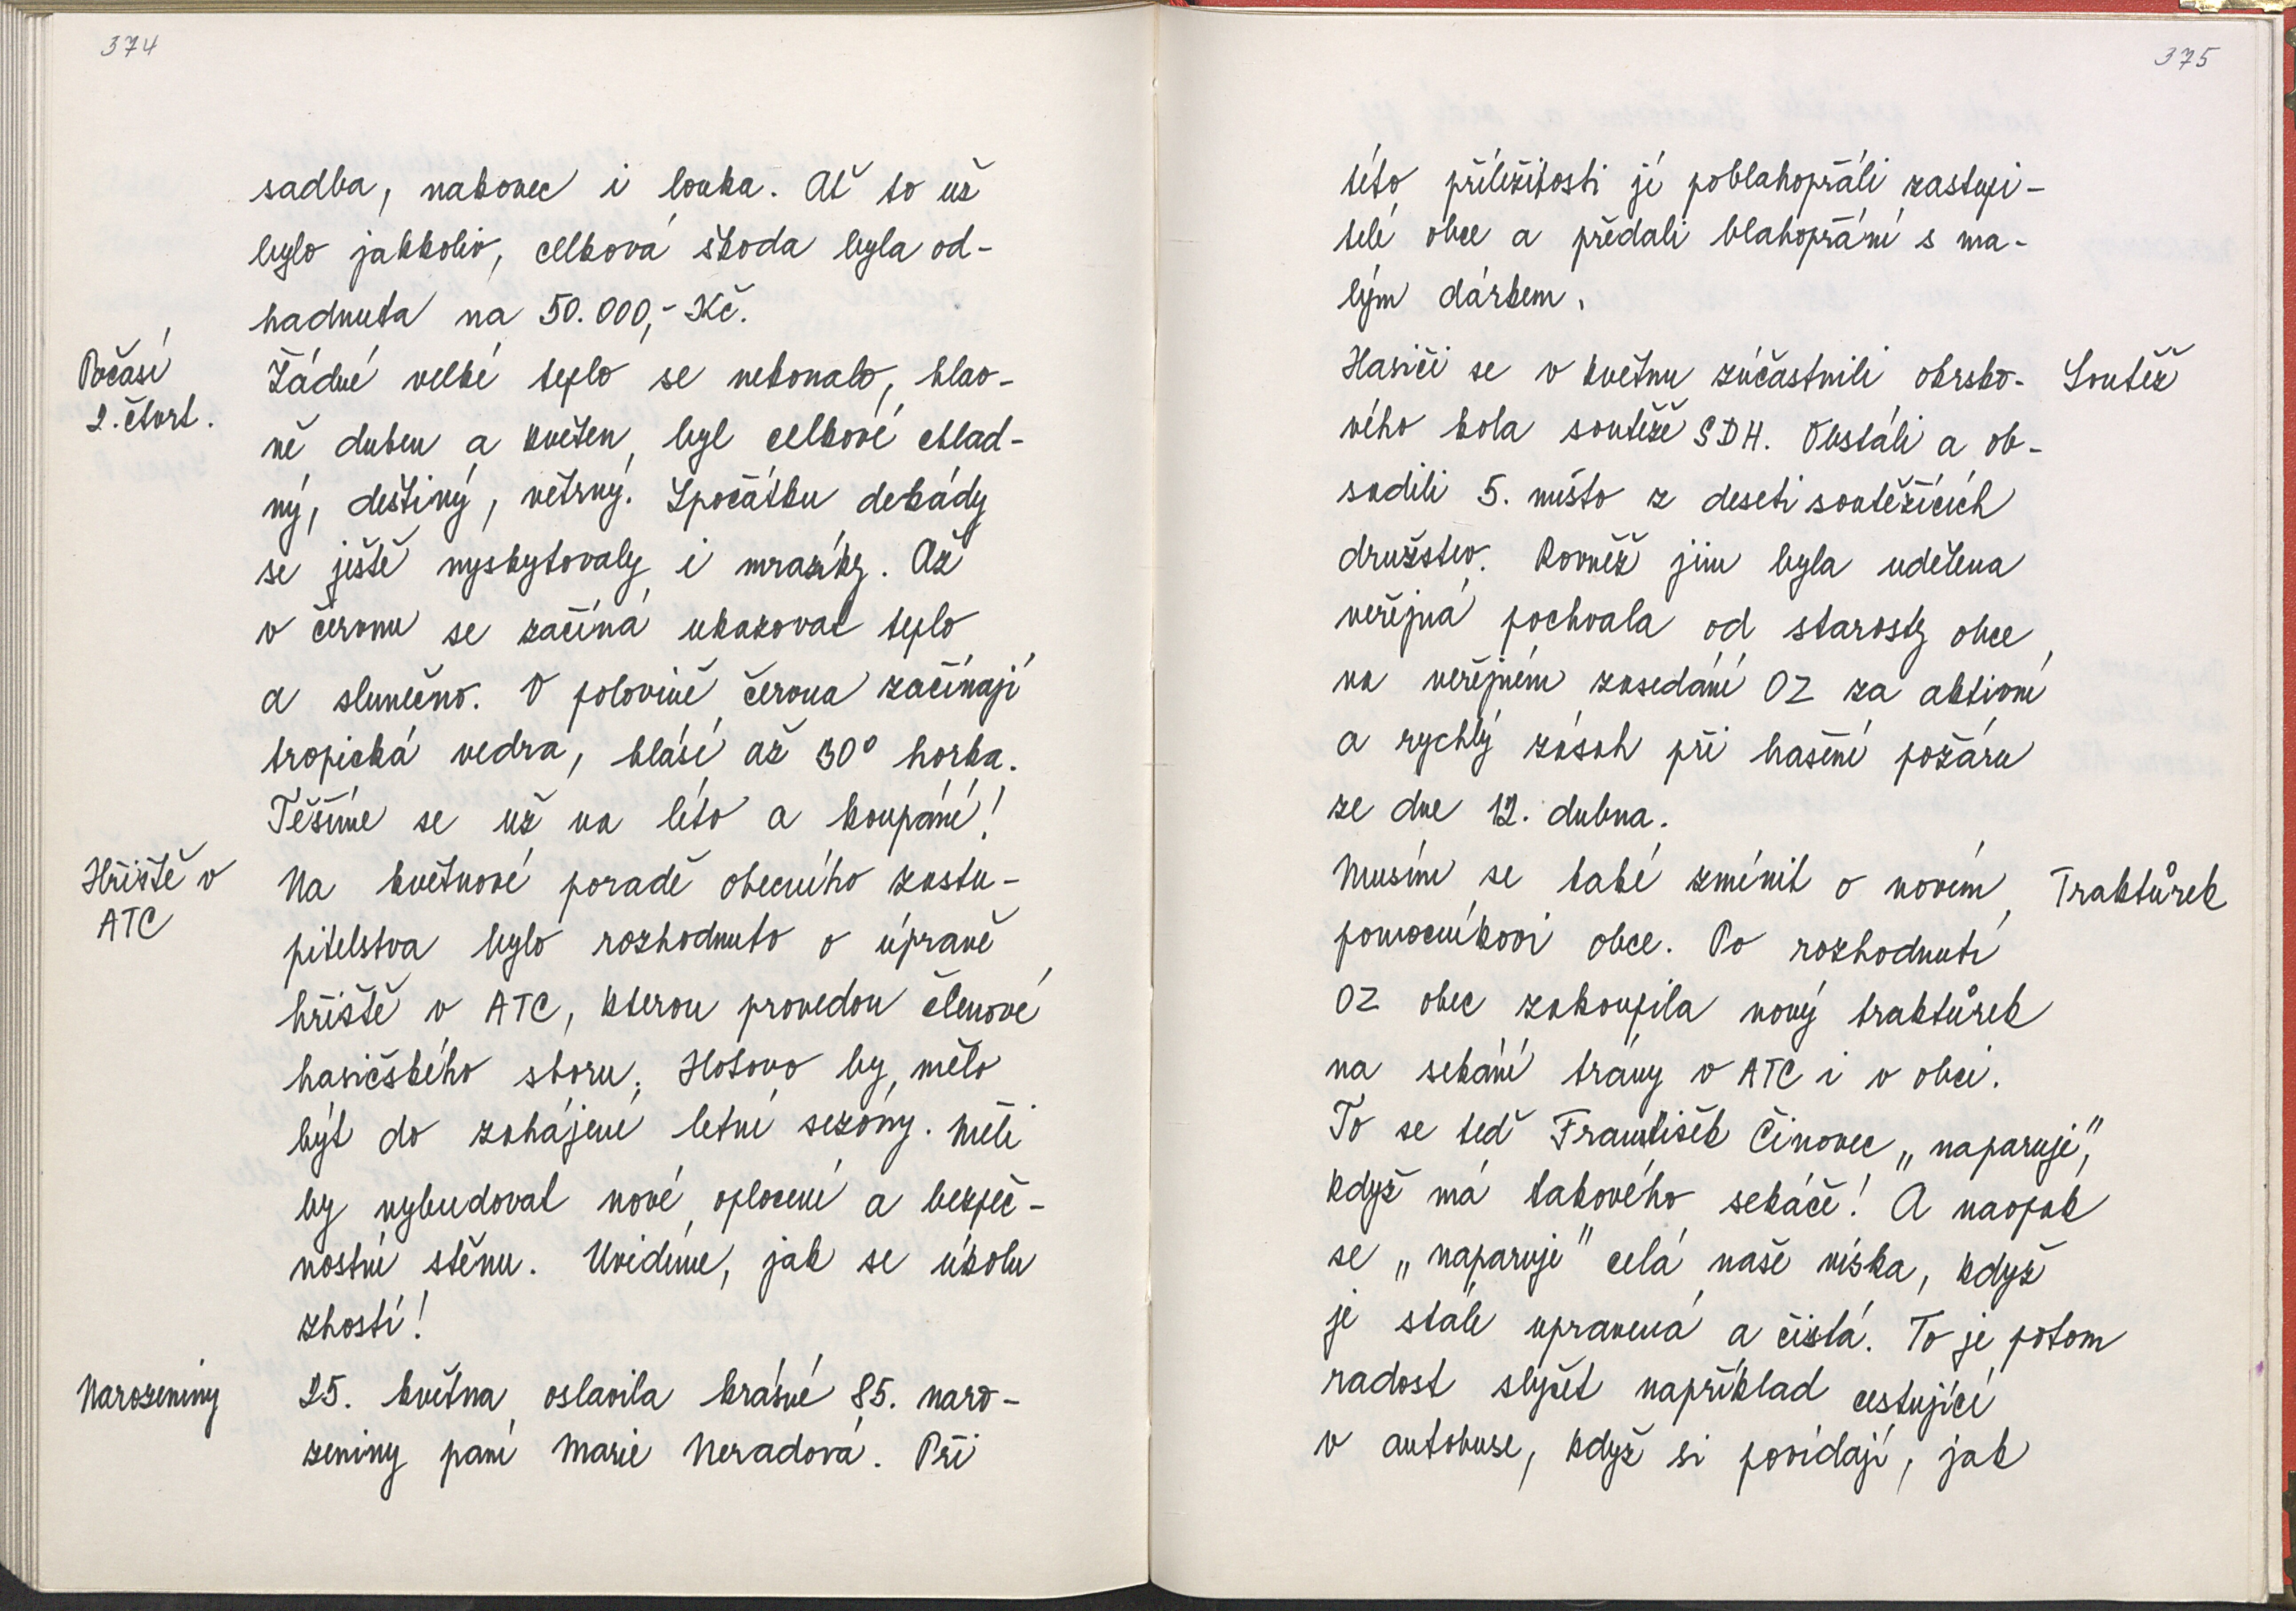 374
sadba, nakonec i louka. Ať to už
bylo jakkoliv, celková škoda byla od-
hadnuta na 50.000,- Kč.
Počasí
2. čtvrt.
Žádné velké teplo se nekonalo, hlav-
ně duben a květen byl celkově chlad-
ný, deštivý, větrný. Zpočátku dekády
se ještě vyskytovaly i mrazíky. Až
v červnu se začíná ukazovat teplo
a slunečno. V polovině června začínají
tropická vedra, hlásí až 30° horka.
Těšíme se už na léto a koupání!
Hřiště v
ATC
Na květnové poradě obecního zastu-
pitelstva bylo rozhodnuto o úpravě
hřiště v ATC, kterou provedou členové
hasičského sboru. Hotovo by mělo
být do zahájení letní sezóny. Měli
by vybudovat nové oplocení a bezpeč-
nostní stěnu. Uvidíme, jak se úkolu
zhostí!
Narozeniny
25. května oslavila krásné 85. naro-
zeniny paní Marie Neradová. Při
375
této příležitosti jí poblahopřáli zastupi-
telé obce a předali blahopřání s ma-
lým dárkem.
Soutěž
Hasiči se v květnu zúčastnili okrsko-
vého kola soutěže SDH. Obstáli a ob-
sadili 5. místo z deseti soutěžících
družstev. Rovněž jim byla udělena
veřejná pochvala od starosty obce
na veřejném zasedání OZ za aktivní
a rychlý zásah při hašení požáru
ze dne 12. dubna.
Traktůrek
Musím se také zmínit o novém
pomocníkovi obce. Po rozhodnutí
OZ obec zakoupila nový traktůrek
na sekání trávy v ATC i v obci.
To se teď František Činovec „naparuje",
když má takového sekáče! A naopak
se „naparuje" celá naše víska, když
je stále upravená a čistá. To je potom
radost slyšet například cestující
v autobuse, když si povídají, jak